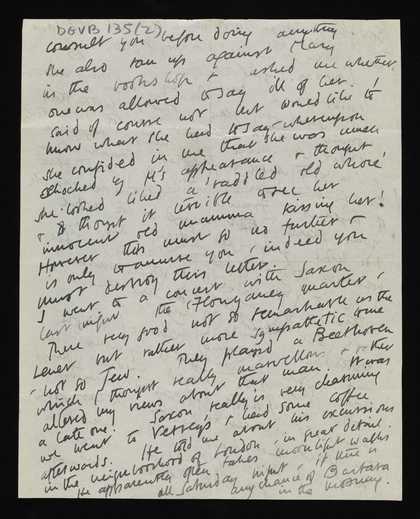 DEVB 135(2)
consult you before doing anything
she also ran up against Mary
in the bookshop & asked me whether
one was allowed to say ill of her. I
said of course not but would like to
know what she had to say – whereupon
she confided in me that she was much
shocked by M's appearance & thought
she looked like a 'raddled old whore'
& thought it terrible to see her
innocent old mamma kissing her!
However this must go no further &
is only to amuse you, indeed you
must destroy this letter.
I went to a concert with Saxon
last night the 'Flonzaney quartet',
There very good not so remarkable as the
Lener but rather more sympathetic some
'not so Jew. They played a Beethoven
which I thought really marvellous & rather
altered my views about that man. It was
a late one! Saxon really is very charming
we went to Verreys & had some coffee
afterwards. He told me about his excursions
in the neighborhood of London, in great detail.
He apparently often takes moonlight walks
all Saturday night, if there is
any chance of Barbara
in the morning.